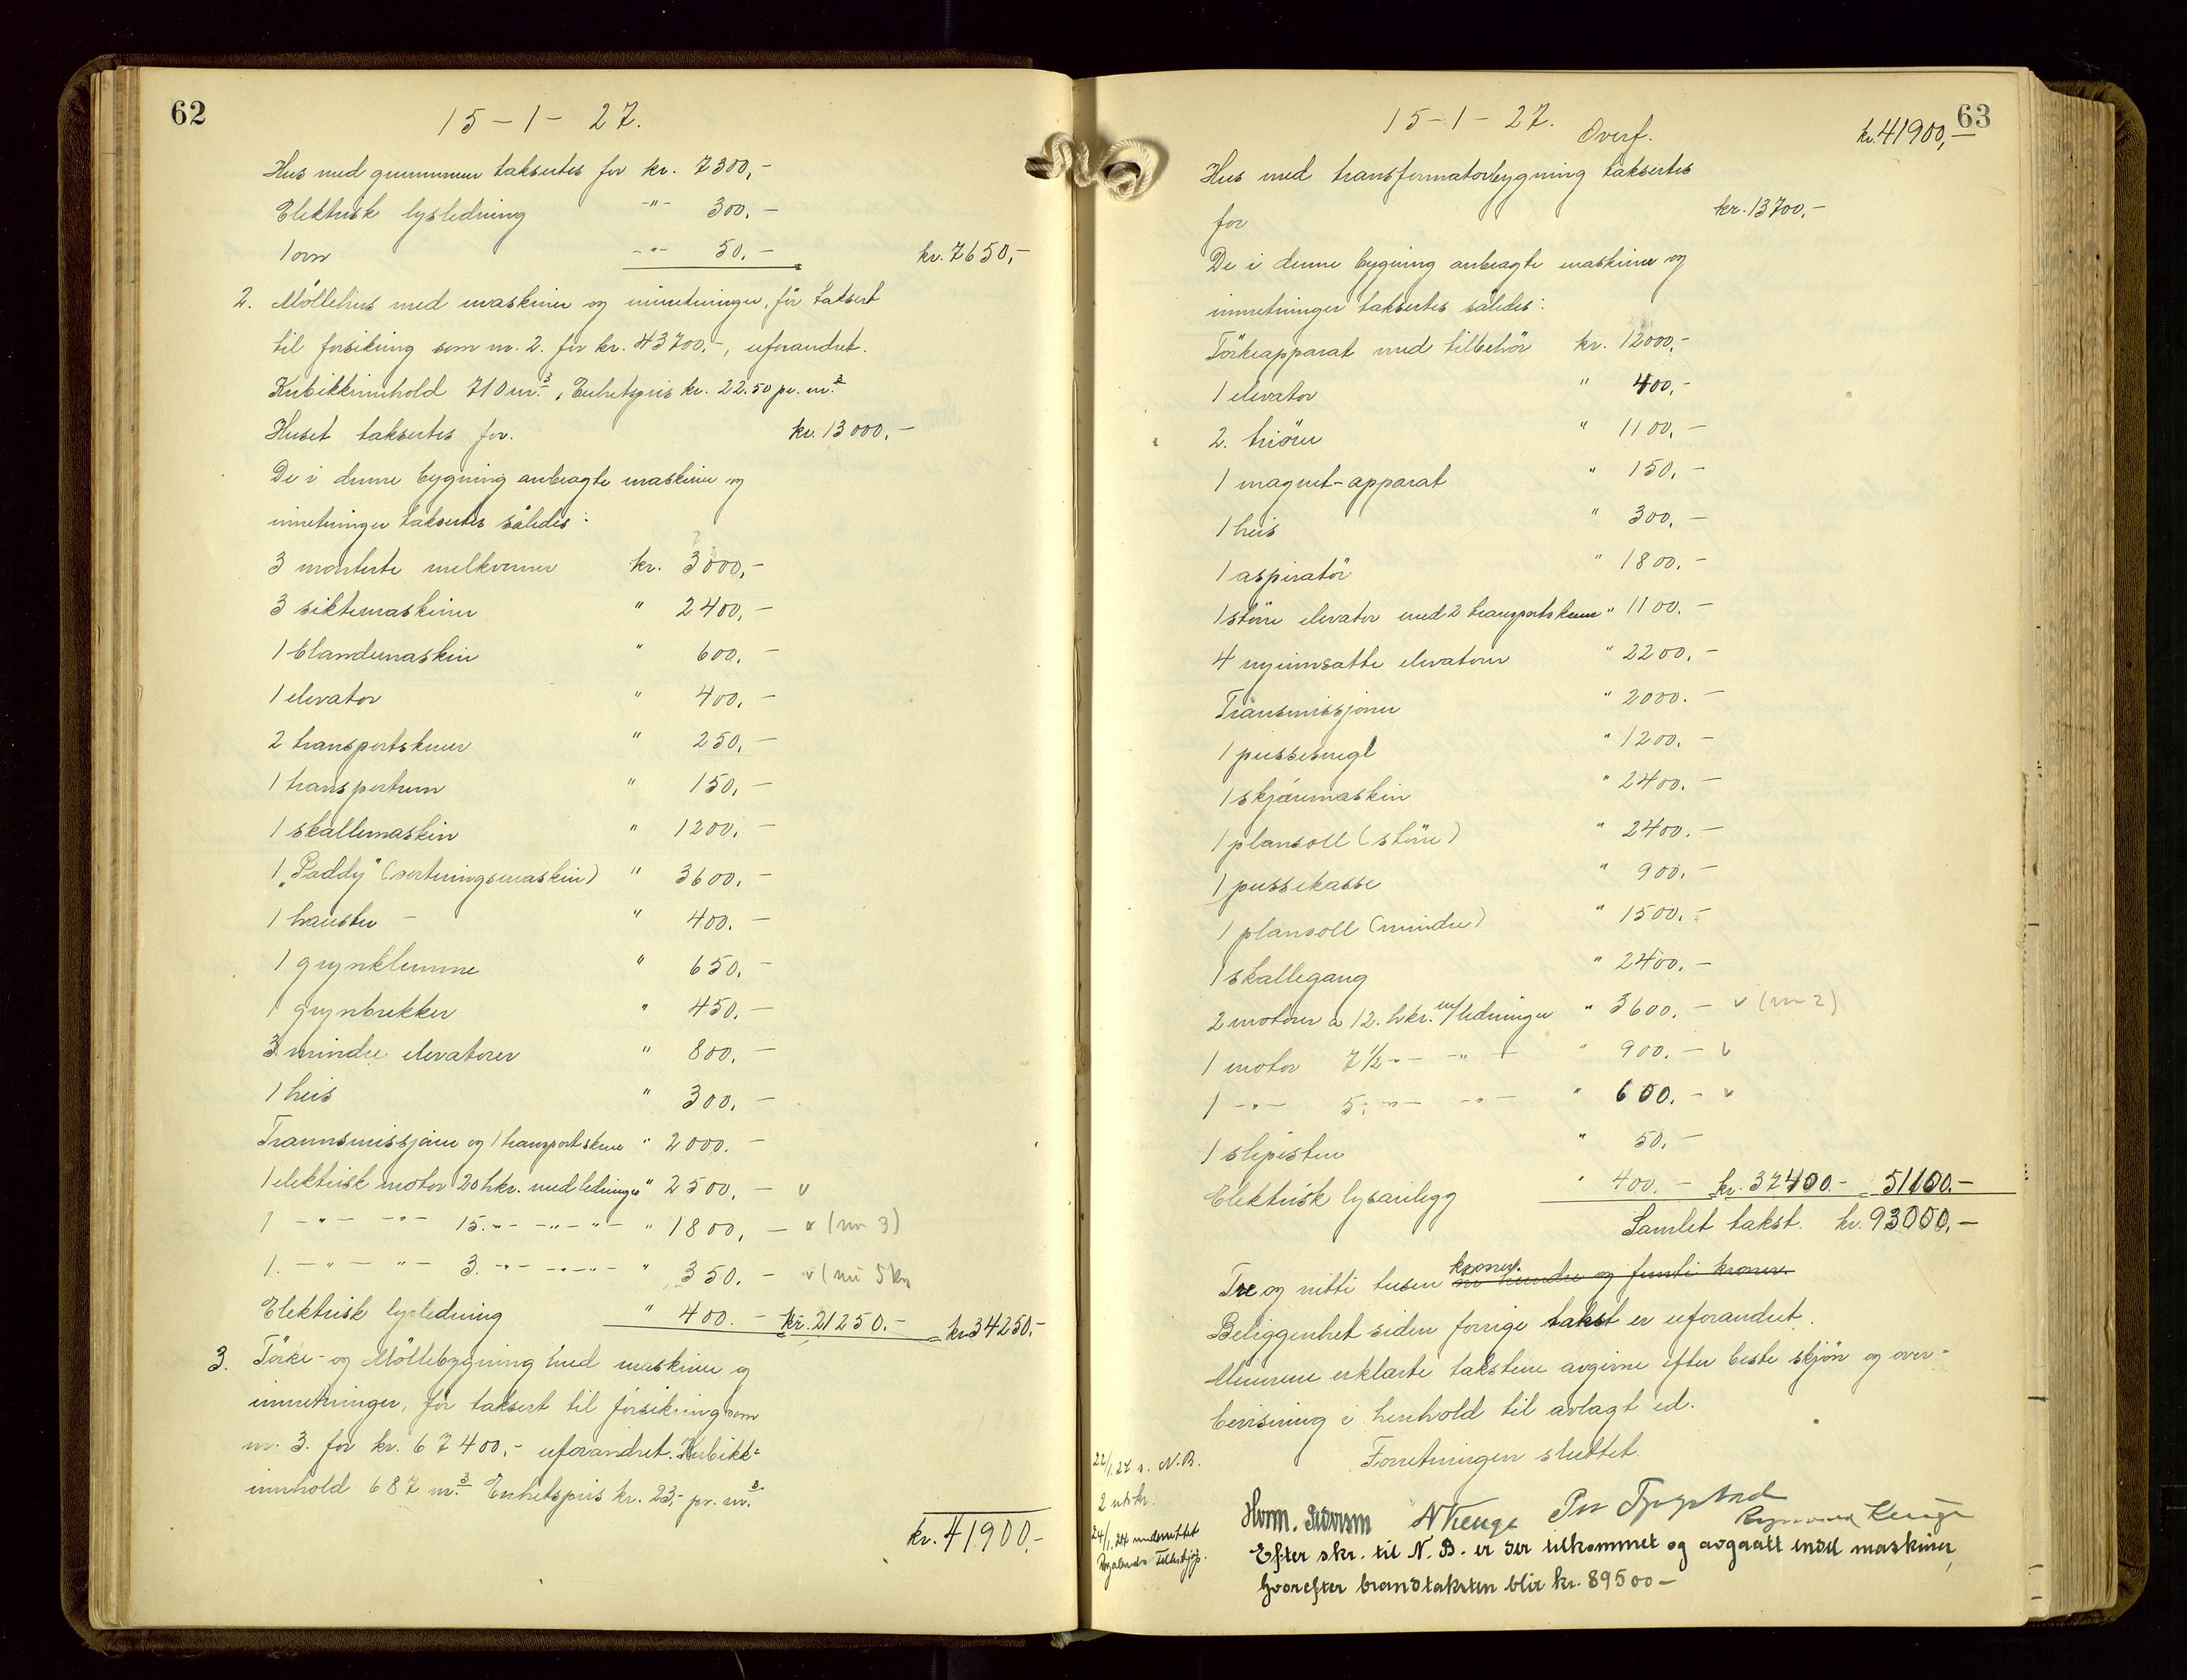 62
15 - 1 - 27.
Hus med grunnmur taksertes for kr. 7300,-
Elektrisk lysledning -"- 300,-
1 ovn -"- 50,- kr. 7650,-
2. Möllehus med maskiner og innretninger, för taksert
til forsikring som nr. 2. for kr. 43700,-, uforandret.
Kubikkinnhold 710 m³, Enhetspris kr. 22.50 pr. m³
Huset taksertes for. kr. 13000,-
De i denne bygning anbragte maskiner og
innretninger taksertes således:
3 monterte melkverner kr. 3000,-
3 siktemaskiner " 2400,-
1 blandemaskin " 600,-
1 elevator " 400,-
2 transportskruer " 250,-
1 transportrem " 150,-
1 skallemaskin " 1200,-
1 „Paddy" (sorteringsmaskin) " 3600,-
1 hauster - " 400.-
1 grynklemme " 650,-
1 grynbrekker " 450.-
3 mindre elevatorer " 800,-
1 heis " 300,-
Trannsmissjoner og 1 transportskrue " 2000.-
1 elektrisk motor 20 hkr. med ledninger " 2500,- v
1 -"- -"- 15.-"- -"-"- " 1800,- v (nr 3)
1.-"- "- 3.-"- -"-"- " 350.- v (nu 5 kr
Elektrisk lysledning " 400.- kr. 21250.- kr 34250.-
3. Törke- og Möllebygning med maskiner og
innretninger, för taksert til forsikring som
nr. 3. for kr. 67400,- uforandret. Kubikk=
innhold 687 m³. Enhetspris kr. 23,- pr. m³.
kr. 41900,-
63
15 - 1 - 27. Overf. kr. 41900,-
Hus med transformatorbygning taksertes
for kr. 13700,-
De i denne bygning anbragte maskiner og
innretninger taksertes således:
Törkeapparat med tilbehör kr. 12000,-
1 elevator " 400,-
2. triörer " 1100,-
1 magnet-apparat " 150,-
1 heis " 300,-
1 aspiratör " 1800.-
1 större elevator med 2 transportskruer " 1100.-
4 nyinnsatte elevatorer " 2200,-
Transmissjoner " 2000.-
1 pussesnegl " 1200.-
1 skjæremaskin " 2400.-
1 plansoll (större) " 2400.-
1 pussekasse " 900.-
1 plansoll (mindre) " 1500.-
1 skallegang " 2400.-
2 motorer a 12. hkr. m/ledninger " 3600.- v (nr 2)
1 motor 7½ -"- -"- " 900.- v
1 -"- 5. -"- -"- " 600.- v
1 slipesten " 50.-
Elektrisk lysanlegg " 400.- kr. 37400.- 51100.-
Samlet takst. kr. 93000,-
Tre og nitti tusen kroner. ni hundre og femti kroner.
Beliggenhet siden forrige takst er uforandret.
Mennene erklærte taksten avgivne efter beste skjön og over-
bevisning i henhold til avlagt ed.
Forretningen sluttet.
22/1.27 s. N.B.
2 utskr.
24/1.27 underrettet
Rogalands Felleskjöp.
Efter skr. til N. B. er der tilkommet og avgaatt endel maskiner,
hvorefter brandtaksten blir kr. 89500-